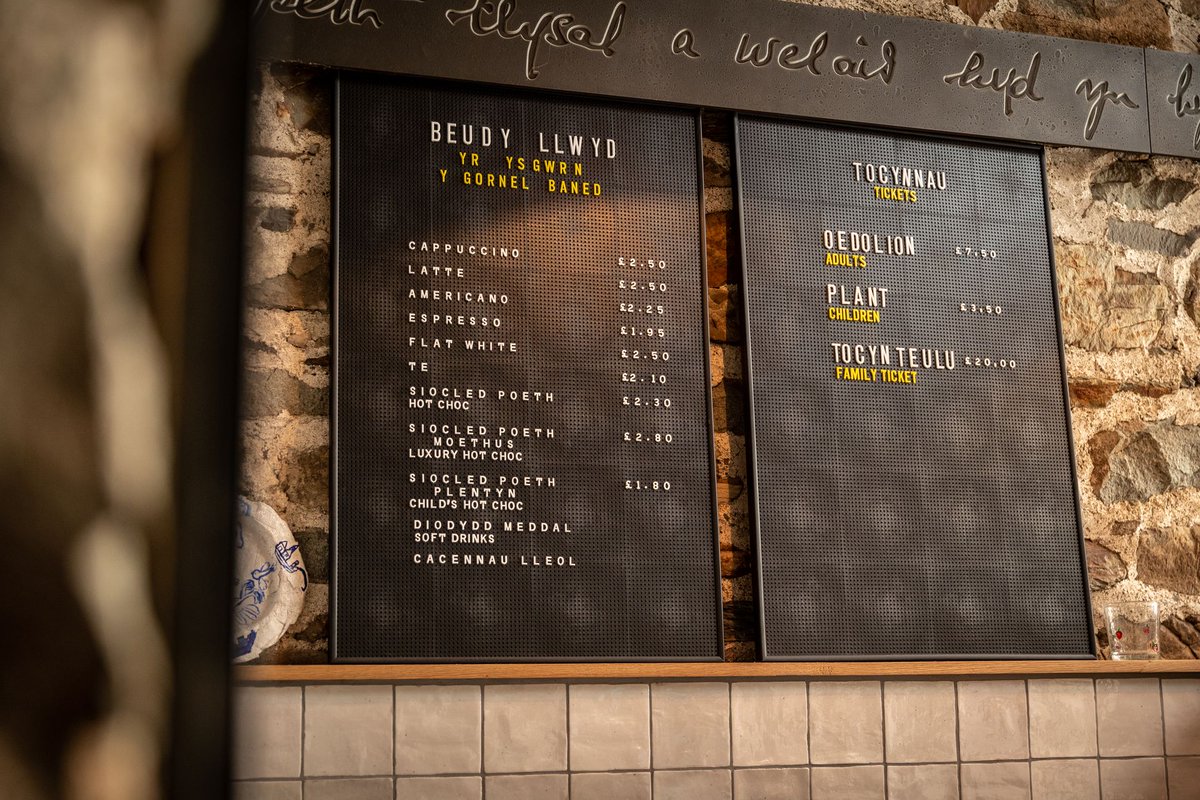 tlysal a welais hyd yn
BEUDY LLWYD
YR YSGWRN
Y GORNEL BANED
CAPPUCCINO £2.50
LATTE £2.50
AMERICANO £2.25
ESPRESSO £1.95
FLAT WHITE £2.50
TE £2.10
SIOCLED POETH £2.30
HOT CHOC
SIOCLED POETH £2.80
MOETHUS
LUXURY HOT CHOC
SIOCLED POETH £1.80
PLENTYN
CHILD'S HOT CHOC
DIODYDD MEDDAL
SOFT DRINKS
CACENNAU LLEOL
TOCYNNAU
TICKETS
OEDOLION £7.50
ADULTS
PLANT £3.50
CHILDREN
TOCYN TEULU £20.00
FAMILY TICKET